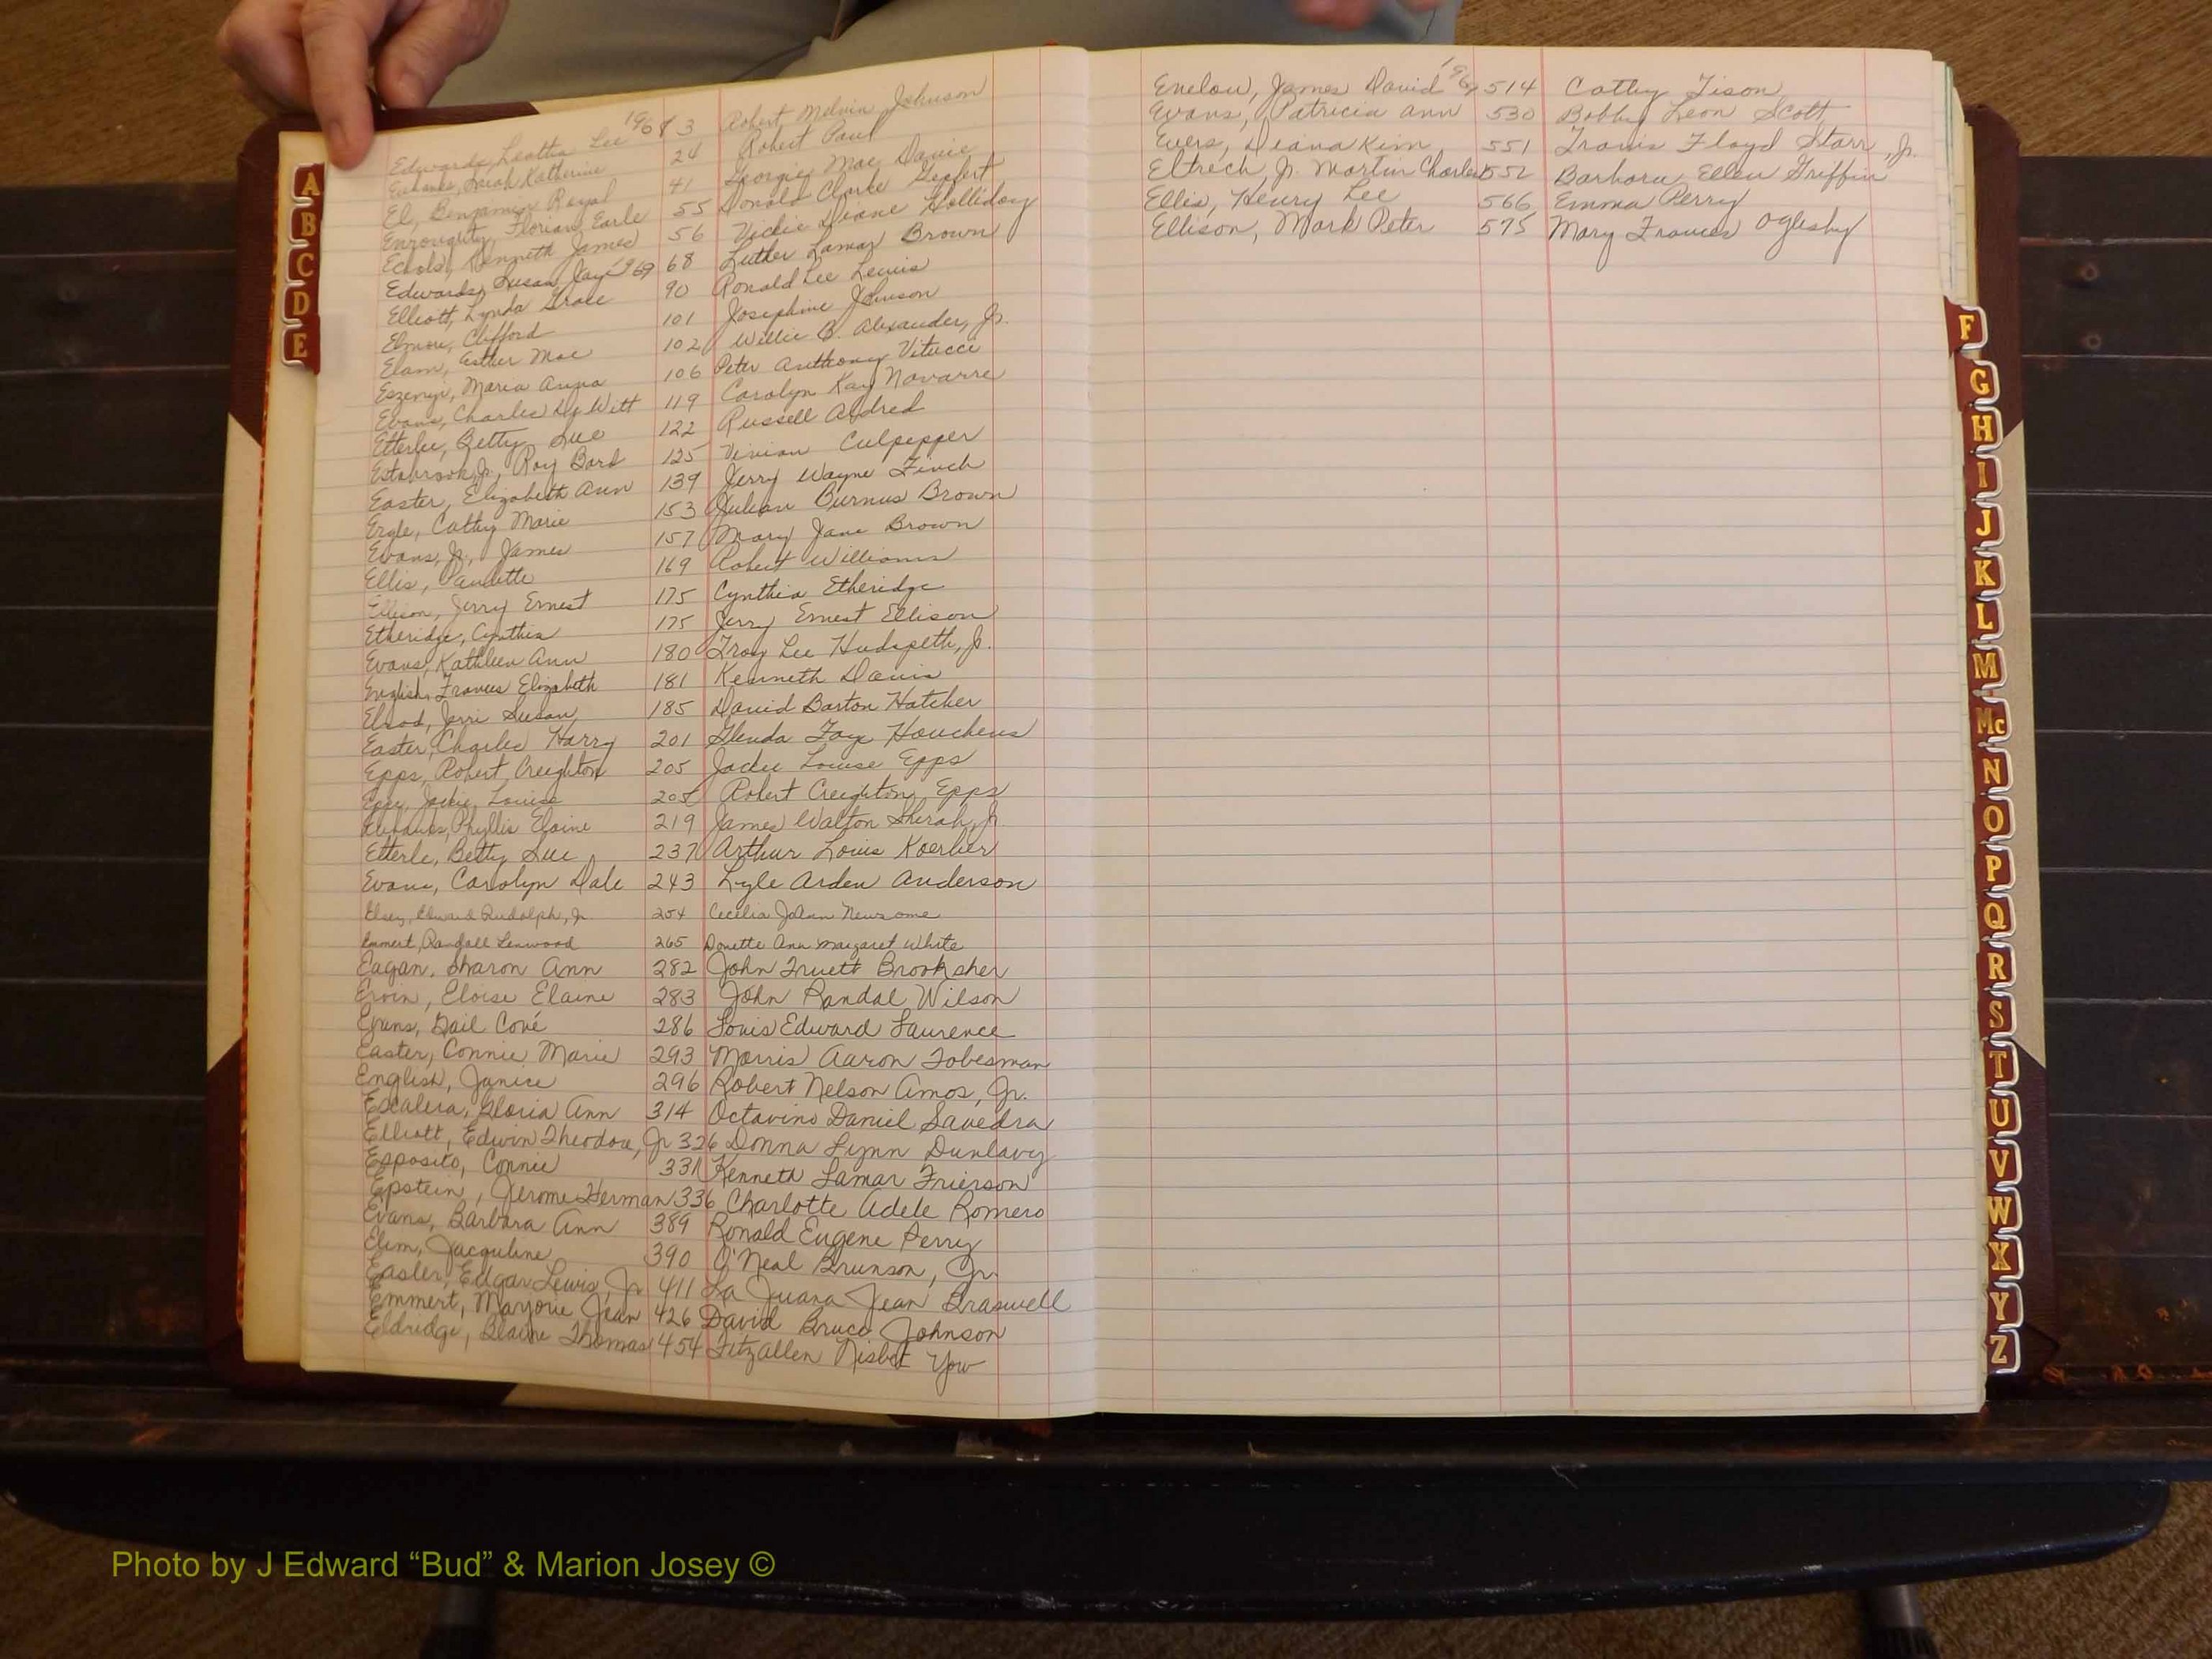 Edwards, Leatha Lee 1968 3 Robert Melvin Johnson
Eubanks, Sarah Katherine 24 Robert Paul
El, Benjamin Royal 41 Georgie Mae Davie
Enroughty, Florian Earle 55 Donald Clarke Geppert
Echols, Kenneth James 56 Vickie Diane Holliday
Edwards, Susan Jaye 1969 68 Luther Lamar Brown
Elliott, Lynda Grace 90 Ronald Lee Lewis
Elmore, Clifford 101 Josephine Johnson
Elam, Esther Mae 102 Willie B. Alexander, Jr.
Eszenyi, Maria Anna 106 Peter Anthony Vitucci
Evans, Charles DeWitt 119 Carolyn Kay Navarre
Etterlee, Betty Sue 122 Russell Aldred
Estabrook, Jr., Roy Bard 125 Vivian Culpepper
Easter, Elizabeth Ann 139 Jerry Wayne Finch
Ergle, Cathy Marie 153 Julian Burnus Brown
Evans, Jr., James 157 Mary Jane Brown
Ellis, Paulette 169 Robert Williams
Ellison, Jerry Ernest 175 Cynthia Etheridge
Etheridge, Cynthia 175 Jerry Ernest Ellison
Evans, Kathleen Ann 180 Troy Lee Hudspeth, Jr.
English, Frances Elizabeth 181 Kenneth Davis
Elrod, Jerri Susan 185 David Barton Hatcher
Easter, Charles Harry 201 Glenda Faye Houchens
Epps, Robert Creighton 205 Jackie Louise Epps
Epps, Jackie Louise 205 Robert Creighton Epps
Eubanks, Phyllis Elaine 219 James Walton Sherah, Jr.
Etterle, Betty Sue 237 Arthur Louis Koerber
Evans, Carolyn Dale 243 Lyle Arden Anderson
Elsey, Edward Rudolph, Jr. 254 Cecelia JoAnn Newsome
Emmert, Randall Lenwood 265 Donette Ann Margaret White
Eagan, Sharon Ann 282 John Truett Brooksher
Ervin, Eloise Elaine 283 John Randal Wilson
Evans, Gail Coné 286 Louis Edward Laurence
Easter, Connie Marie 293 Morris Aaron Tobesman
English, Janice 296 Robert Nelson Amos, Jr.
Escalera, Gloria Ann 314 Octavino Daniel Savedra
Elliott, Edwin Theodore, Jr 326 Donna Lynn Dunlavy
Esposito, Connie 331 Kenneth Lamar Frierson
Epstein, Jerome Herman 336 Charlotte Adele Romero
Evans, Barbara Ann 389 Ronald Eugene Perry
Elim, Jacquline 390 O'Neal Brunson, Jr.
Easler, Edgar Lewis, Jr 411 La Juana Jean Braswell
Emmert, Marjorie Jean 426 David Bruce Johnson
Eldridge, Blaine Thomas 454 Fitzallen Nisbet Yow
Enelow, James David 1969 514 Cathy Tison
Evans, Patricia Ann 530 Bobby Leon Scott
Evers, Diana Kim 551 Travis Floyd Starr, Jr.
Eltrech, Jr. Martin Charles 552 Barbara Ellen Griffin
Ellis, Henry Lee 566 Emma Perry
Ellison, Mark Peter 575 Mary Frances Oglesby
A
B
C
D
E
F
G
H
I
J
K
L
M
Mc
N
O
P
Q
R
S
T
U
V
W
X
Y
Z
Photo by J Edward “Bud” & Marion Josey ©